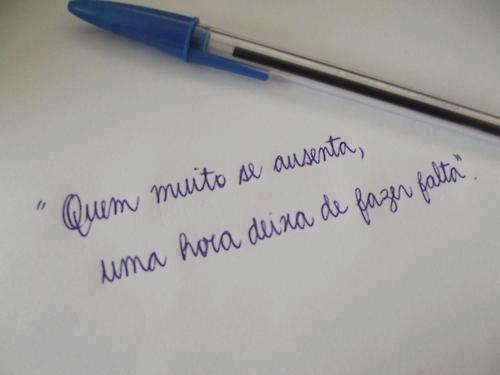 "Quem muito se ausenta,
uma hora deixa de fazer falta".